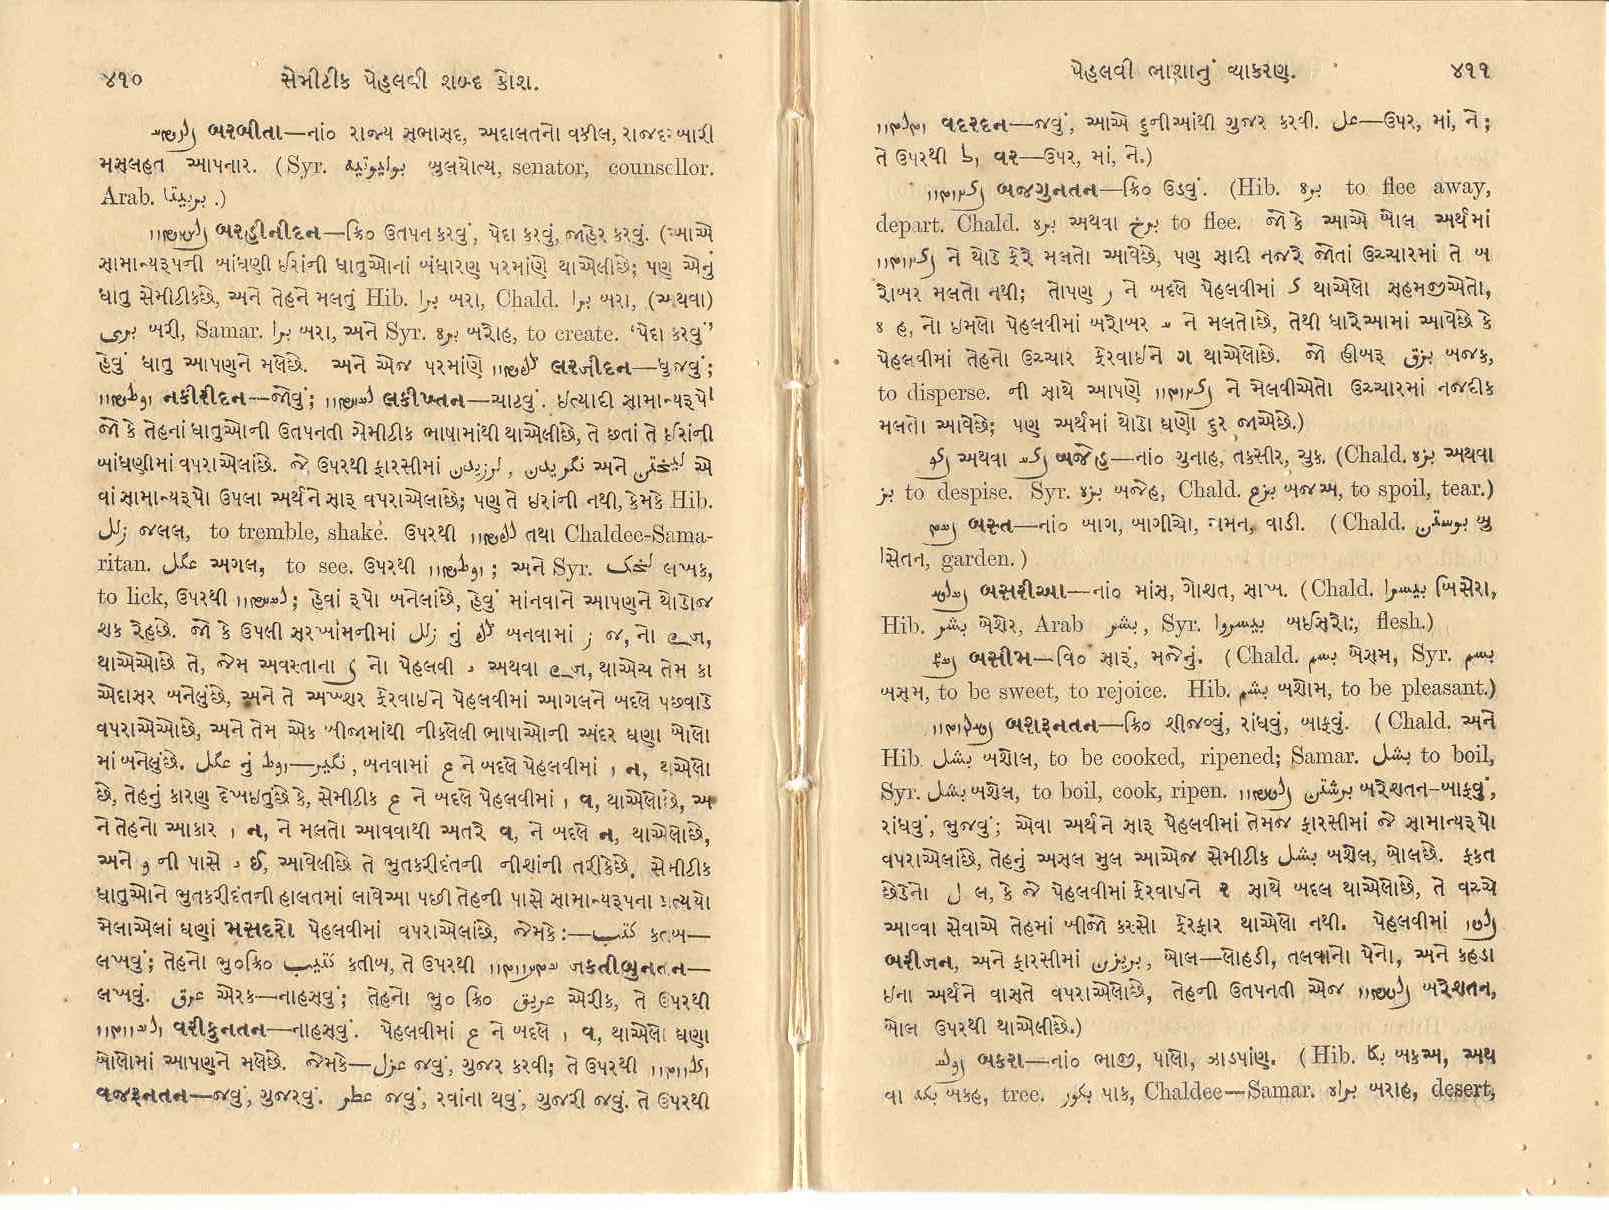 ૪૧૦ સેમીટીક પેહલવી શબ્દ કોશ.
બરબીતા—નાં૦ રાજ્ય સભાસદ, અદાલતનો વકીલ, રાજદરબારી
મસલહત આપનાર. (Syr. બુલયોત્ય, senator, counsellor.
Arab. بربيتا .)
બરહીનીદન—ક્રિ૦ ઉતપન કરવું, પેદા કરવું, જાહેર કરવું. (આએ
સામાન્યરૂપની બાંધણી ઈરાંની ધાતુઓનાં બંધારણ પરમાંણે થાએલીછે; પણ એનું
ધાતુ સેમીટીકછે, અને તેહને મલતું Hib. برا બરા, Chald. برا બરા, (અથવા)
بری બરી, Samar. برا બરા, અને Syr. બરોહ, to create. ‘પેદા કરવું’
હેવું ધાતુ આપણુને મલેછે. અને એજ પરમાંણે લરજીદન—ધુજવું;
નકીરીદન—જોવું; લકીખ્તન—ચાટવું. ઇત્યાદી સામાન્યરૂપો
જો કે તેહનાં ધાતુઓની ઉતપનતી સેમીટીક ભાષામાંથી થાએલીછે, તે છતાં તે ઈરાંની
બાંધણીમાં વપરાએલાંછે. જે ઉપરથી ફારસીમાં لرزيدن , نگريدن અને ليختن એ
વાં સામાન્યરૂપો ઉપલા અર્થને સારૂ વપરાએલાછે; પણ તે ઈરાંની નથી, કેમકે Hib.
زلل જલલ, to tremble, shake. ઉપરથી તથા Chaldee-Sama-
ritan. عگل અગલ, to see. ઉપરથી ; અને Syr. لخک લખક,
to lick, ઉપરથી ; હેવાં રૂપો બનેલાંછે, હેવું માંનવાને આપણને થોડોજ
શક રેહછે. જો કે ઉપલી સરખાંમનીમાં زلل નું બનવામાં ز જ, નો જ,
થાએઓછે તે, જેમ અવસ્તાના નો પેહલવી અથવા જ, થાએચ તેમ કા
એદાસર બનેલુંછે, અને તે અખ્શર ફેરવાઇને પેહલવીમાં આગલને બદલે પછવાડે
વપરાએઓછે, અને તેમ એક બીજામાંથી નીકલેલી ભાષાઓની અંદર ઘણા બોલો
માં બનેલુંછે. عگل નું نگير, બનવામાં ع ને બદલે પેહલવીમાં ન, થાએલો
છે, તેહનું કારણ દેખાઇતુંછે કે, સેમીટીક ع ને બદલે પેહલવીમાં વ, થાએલોછે, અ
ને તેહનો આકાર ન, ને મલતો આવવાથી અતરે વ, ને બદલે ન, થાએલોછે,
અને و ની પાસે ઈ, આવેલીછે તે ભુતકરીદંતની નીશાંની તરીકેછે. સેમીટીક
ધાતુઓને ભુતકરીદંતની હાલતમાં લાવેઆ પછી તેહની પાસે સામાન્યરૂપના પ્રત્યયો
મેલાએલાં ઘણાં મસદરો પેહલવીમાં વપરાએલાંછે, જેમકે:— کتب કતબ—
લખવું; તેહનો ભુ૦ક્રિ૦ کتيب કતીબ, તે ઉપરથી જકતીબુનતન—
લખવું. عرق એરક—નાહસવું; તેહનો ભુ૦ ક્રિ૦ عريق એરીક, તે ઉપરથી
વરીકુનતન—નાહસવું. પેહલવીમાં ع ને બદલે વ, થાએલો ઘણા
બોલોમાં આપણને મલેછે. જેમકે— عزل જવું, ગુજર કરવી; તે ઉપરથી
વજરૂનતન—જવું, ગુજરવું. જવું, રવાંના થવું, ગુજરી જવું. તે ઉપરથી
પેહલવી ભાશાનું વ્યાકરણ. ૪૧૧
વદરદન—જવું, આએ દુનીઆંથી ગુજર કરવી. عل—ઉપર, માં, ને;
તે ઉપરથી વર—ઉપર, માં, ને.)
બજગુનતન—ક્રિ૦ ઉડવું. (Hib. to flee away,
depart. Chald. અથવા برخ to flee. જો કે આએ બોલ અર્થમાં
ને થોડે ફેરે મલતો આવેછે, પણ સાદી નજરે જોતાં ઉચ્ચારમાં તે બ
રોબર મલતો નથી; તોપણ ર ને બદલે પેહલવીમાં થાએલો સહમજીએતો,
હ, નો ઇમલો પેહલવીમાં બરોબર ને મલતોછે, તેથી ધારેઆમાં આવેછે કે
પેહલવીમાં તેહનો ઉચ્ચાર ફેરવાઇને ગ થાએલોછે. જો હીબરૂ بزق બજક,
to disperse. ની સાથે આપણે ને મેલવીએતો ઉચ્ચારમાં નજદીક
મલતો આવેછે; પણ અર્થમાં થોડો ઘણો દુર જાએછે.)
અથવા બજેહ—નાં૦ ગુનાહ, તકસીર, ચુક. (Chald. અથવા
بز to despise. Syr. બજેહ, Chald. بزع બજઅ, to spoil, tear.)
બસ્ત—નાં૦ બાગ, બાગીચો, ચમન, વાડી. (Chald. بوستن બુ
સિતન, garden.)
બસરીઆ—નાં૦ માંસ, ગોશત, સાખ. (Chald. بيسرا બિસેરા,
Hib. بشر બેશેર, Arab بشر, Syr. بيسروا બઇસરોા, flesh.)
બસીમ—વિ૦ સારૂં, મજેનું. (Chald. بسم બેસમ, Syr. بسم
બસમ, to be sweet, to rejoice. Hib. بشم બશેામ, to be pleasant.)
બશરૂનતન—ક્રિ૦ શીજવવું, રાંધવું, બાફવું. (Chald. અને
Hib. بشل બશેાલ, to be cooked, ripened; Samar. بشل to boil,
Syr. بشل બશેલ, to boil, cook, ripen. برشتن બરેશતન-બાફવું,
રાંધવું, ભુજવું; એવા અર્થને સારૂ પેહલવીમાં તેમજ ફારસીમાં જે સામાન્યરૂપો
વપરાએલાંછે, તેહનું અસલ મુલ આએજ સેમીટીક بشل બશેલ, બોલછે. ફકત
છેડેનો ل લ, કે જે પેહલવીમાં ફેરવાઇને ર સાથે બદલ થાએલોછે, તે વચ્ચે
આવ્વા સેવાએ તેહમાં બીજો કસ્સો ફેરફાર થાએલો નથી. પેહલવીમાં
બરીજન, અને ફારસીમાં بريزن, બોલ—લોહડી, તલવાનો પેનો, અને કહડા
ઇના અર્થને વાસતે વપરાએલોછે, તેહની ઉતપનતી એજ બરેશતન,
બોલ ઉપરથી થાએલીછે.)
બકરા—નાં૦ ભાજી, પાલો, ઝાડપાંણ. (Hib. بکا બકઅ, અથ
વા بکہ બકહ, tree. بکور પાક, Chaldee—Samar. બરાહ, desert,